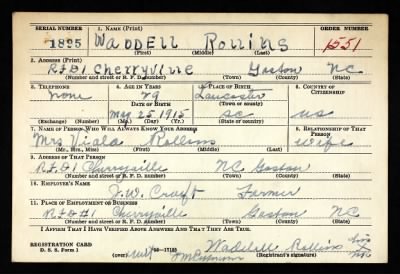 SERIAL NUMBER 1. NAME (Print) ORDER NUMBER
1895 WADDELL Rollins 1551
(First) (Middle) (Last)
2. ADDRESS (Print)
RFD1 Cherryville Gaston NC
(Number and street or R. F. D. number) (Town) (County) (State)
3. TELEPHONE 4. AGE IN YEARS 5. PLACE OF BIRTH 6. COUNTRY OF CITIZENSHIP
none Lancaster
DATE OF BIRTH (Town or county)
May 25 1915 SC US
(Exchange) (Number) (Mo.) (Day) (Yr.) (State or country)
7. NAME OF PERSON WHO WILL ALWAYS KNOW YOUR ADDRESS 8. RELATIONSHIP OF THAT PERSON
Mrs Viola Rollins wife
(Mr., Mrs., Miss) (First) (Middle) (Last)
9. ADDRESS OF THAT PERSON
R.F.D1 Cherryville NC Gaston
(Number and street or R. F. D. number) (Town) (County) (State)
10. EMPLOYER'S NAME
J.W. Craft Farmer
11. PLACE OF EMPLOYMENT OR BUSINESS
RFD#1 Cherryville Gaston NC
(Number and street or R. F. D. number) (Town) (County) (State)
I AFFIRM THAT I HAVE VERIFIED ABOVE ANSWERS AND THAT THEY ARE TRUE.
REGISTRATION CARD
D. S. S. Form 1 (over) 16-17105 Waddell Rollins
(Registrant's signature)